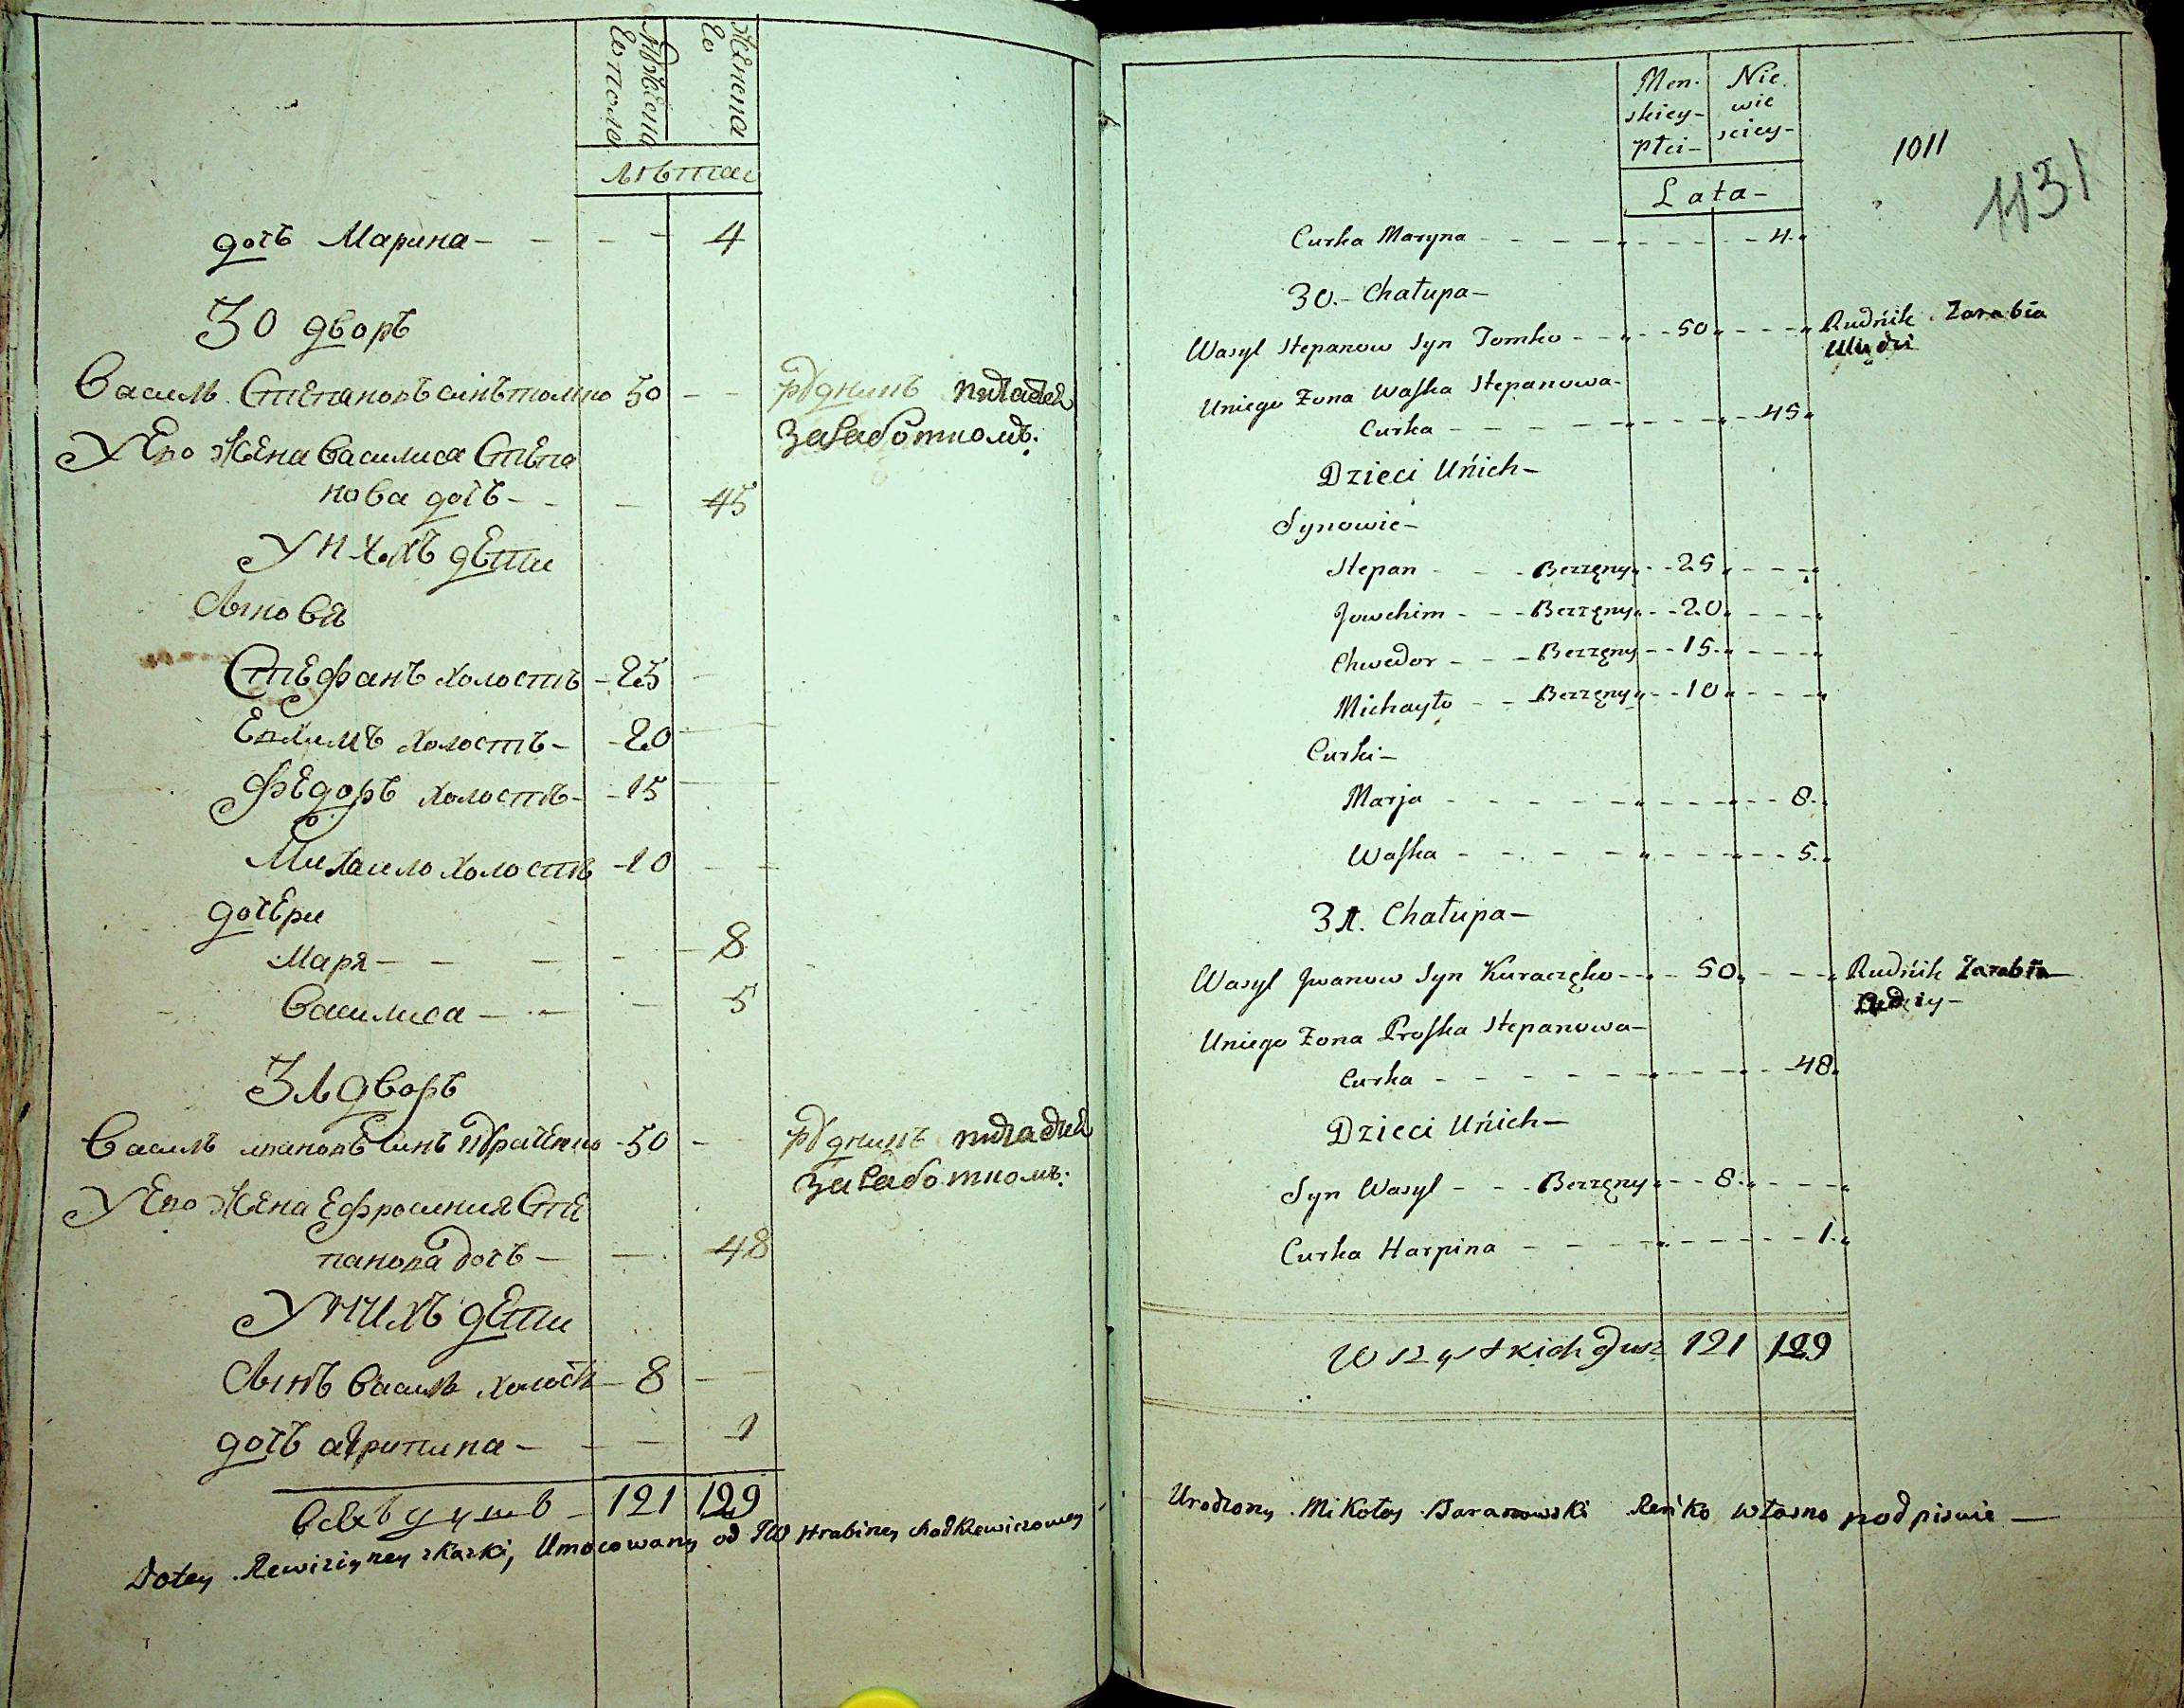 Мужеска
го пола
Женска
го
Лѣта
дочь Марина - - - - 4
30 дворъ
Василь Степановъ синъ томко 50 - - рудникъ
заработкомъ.
У Его Жена Василиса Степа
нова дочь - - - 45
У нихъ дети
Сыновя
Стефанъ холостъ - 25 -
Ефимъ холостъ - - 20 -
Федоръ холостъ - - 15 -
Михаило холостъ - 10 - -
дочери
Маря - - - - - 8
Василиса - - - 5
31 дворъ
Василь ивановъ синъ Курачемко - 50 - рудникъ
заработкомъ.
У Его Жена Ефросиния Сте
панова дочь - - 48
У нихъ дети
Сынъ Василь холостъ - 8 - -
дочь агрипина - - - 1
всехъ душъ - 121 129
Do tey Rewizijney skazki, Umocowany od JW Hrabiney Chodkiewiczowey
Men-
skiey-
Płci-
Nie.
wie
sciey-
Lata-
1011
1131
Curka Maryna - - - - - - - 4.
30.- Chałupa-
Wasyl Stepanow Syn Tomko - - - 50 - - - Rudnik Zarabia
Uniego Żona Waska Stepanowa-
Curka - - - - - - - 45
Dzieci Unich-
Synowie-
Stepan - - - Bezzęny - - 25 - - -
Jowchim - - - Bezzęny - - 20 - - -
Chwedor - - - Bezzęny - - 15 - - -
Michayło - - Bezzęny - - 10 - - -
Curki-
Marja - - - - - - - - 8.
Waska - - - - - - - - 5.
31. Chałupa-
Wasyl Jwanow Syn Kuraczęko - - 50 - - - Rudnik Zarabia
Uniego Żona Proska Stepanowa-
Curka - - - - - - - 48
Dzieci Unich-
Syn Wasyl - - - Bezzęny - - 8 - - -
Curka Harpina - - - - - - - 1.
Wszystkich Dusz 121 129
Urodzony Mikołay Baranowski Ręko własno podpisuie -